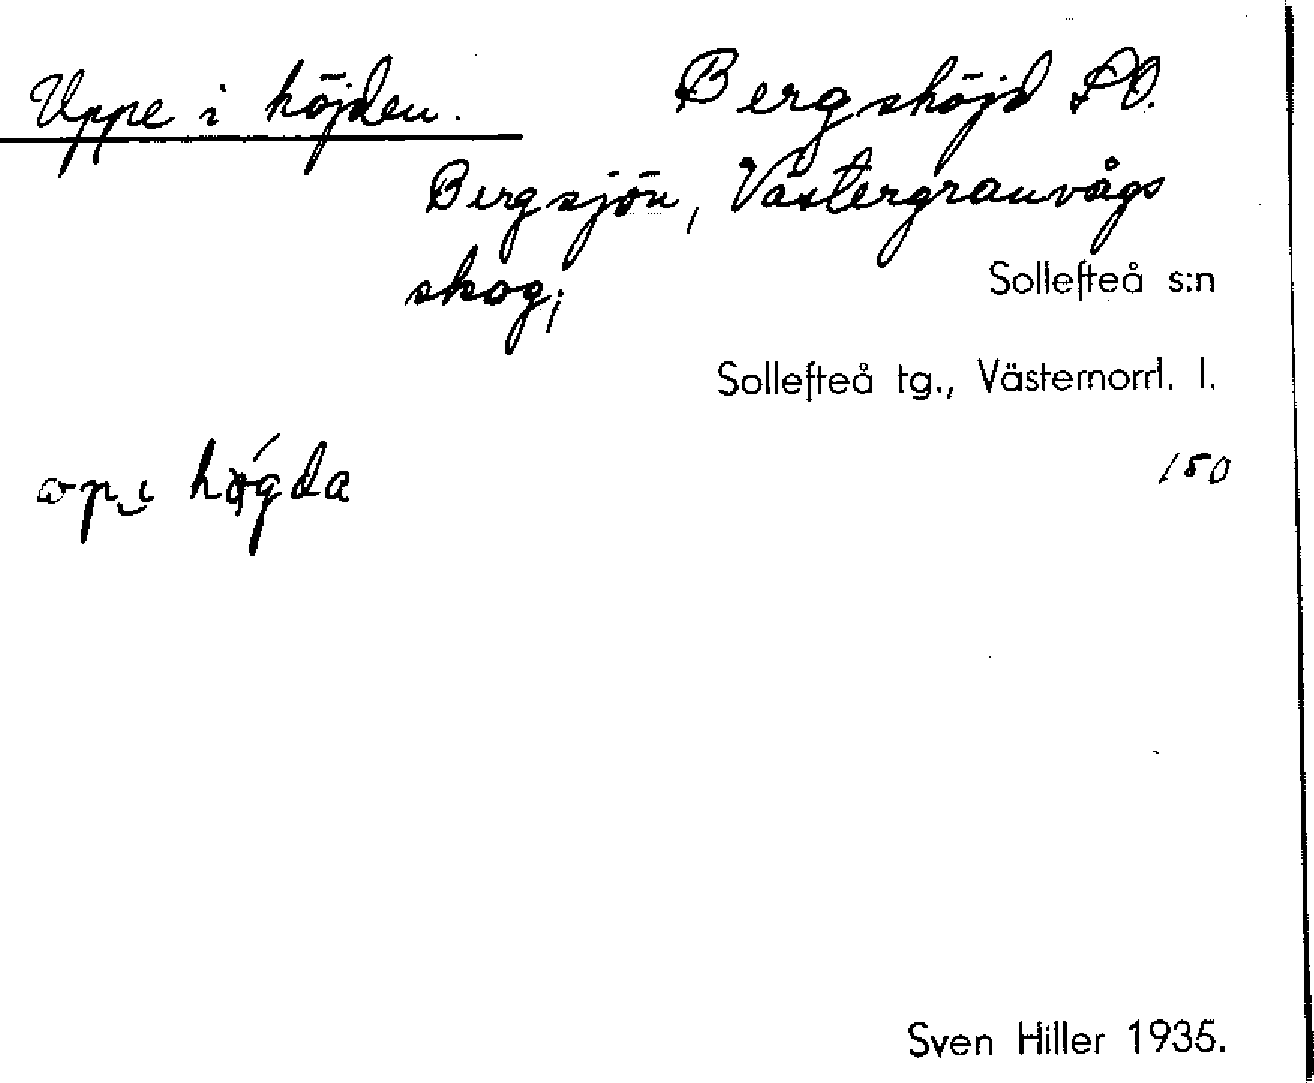 Uppe i höjden. Bergshöjd SO.
Bergsjön, Västergranvågs
skog;
Sollefteå s:n
Sollefteå tg., Västernorrl. l.
150
högda
Sven Hiller 1935.